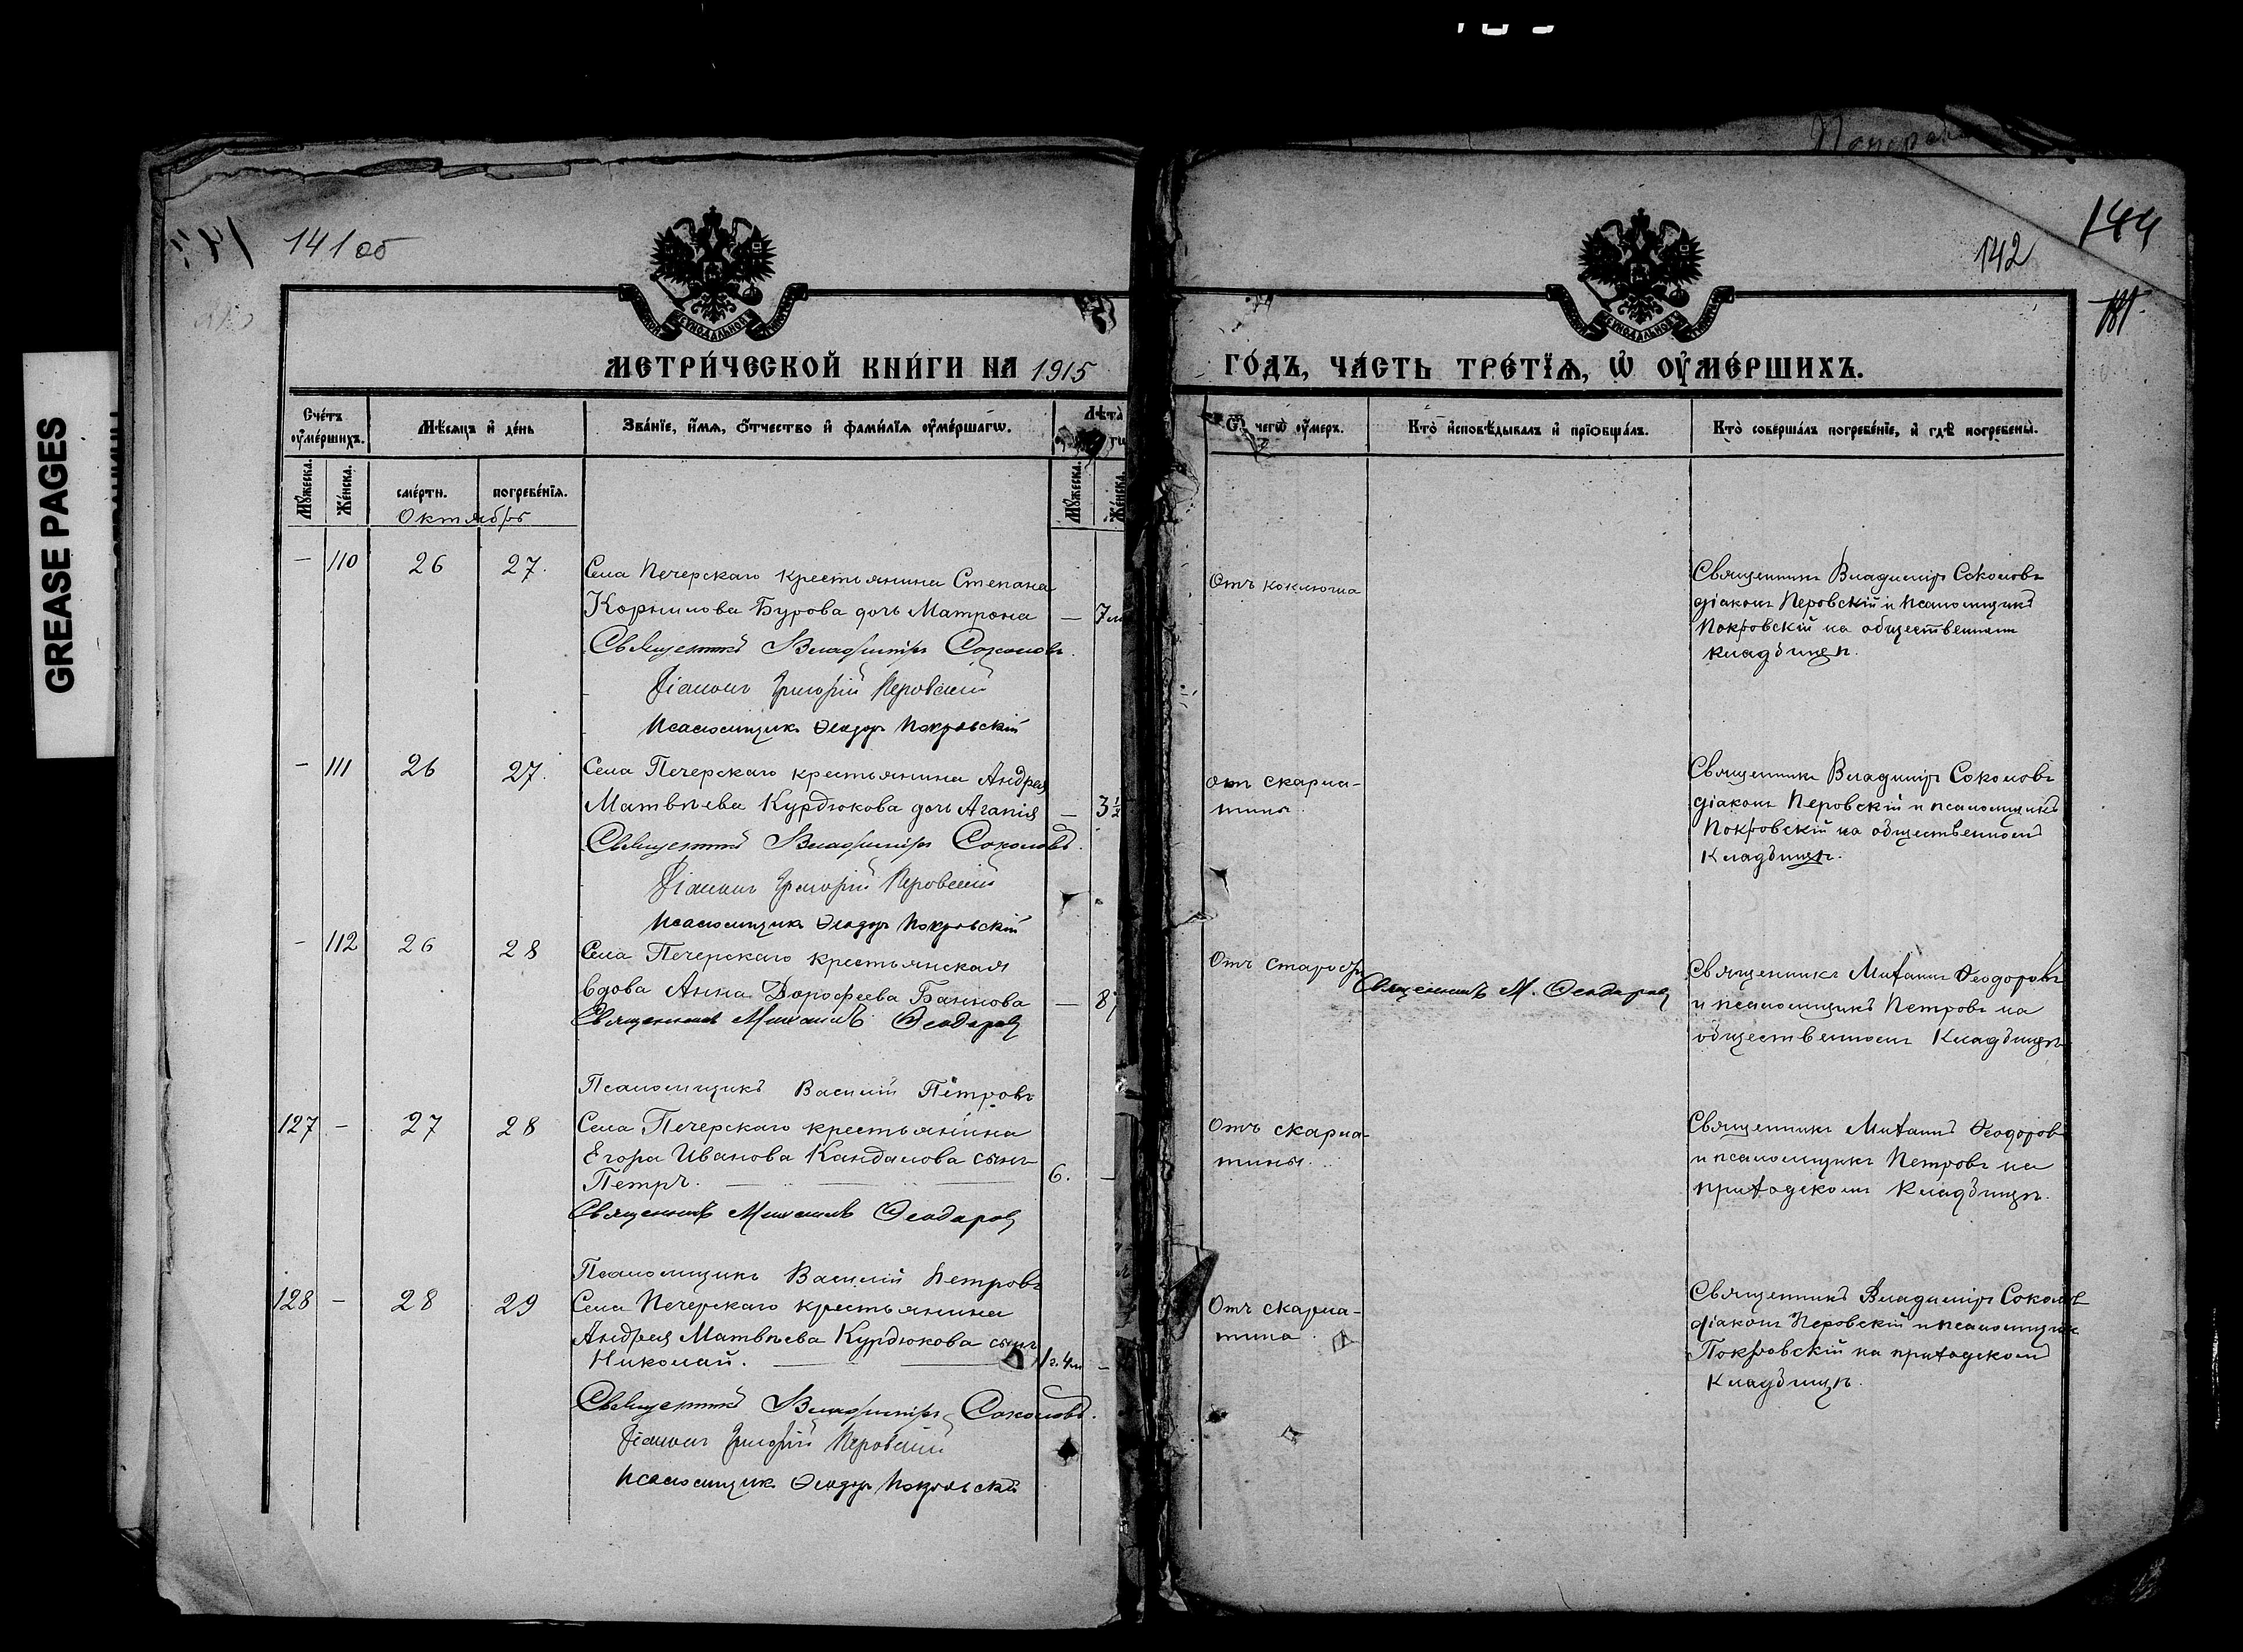 GREASE PAGES
141 об
142
144
МЕТРИ́ЧЕСКОЙ КНИ́ГИ НА 1915 ГО́ДЪ, ЧА́СТЬ ТРЕ́ТЇѦ, Ѡ҆ ОУ҆МЕ́РШИХЪ.
Сче́тъ оу҆ме́ршихъ.
Мѣ́сѧцъ и҆ де́нь
Зва́нїе, и҆́мѧ, ѻ҆́тчество и҆ фами́лїѧ оу҆ме́ршагѡ.
Лѣта̀
Ѿ чегѡ̀ оу҆́меръ.
Кто̀ и҆сповѣ́дывалъ и҆ прїѡбща́лъ.
Кто̀ соверша́лъ погребе́нїе, и҆ гдѣ̀ погребены̀.
Мꙋ́жеска.
Же́нска.
сме́рти.
погребе́нїѧ.
Мꙋ́жеска.
Же́нска.
Октябрь
— 110 26 27.
Села Печерскаго крестьянина Степана
Корнилова Бурова дочь Матрона — 7 м
Священникъ Владиміръ Соколовъ.
Діаконъ Григорій Перовскій
Псаломщикъ Ѳеодоръ Покровскій
Отъ коклюша
Священникъ Владиміръ Соколовъ
діаконъ Перовскій и псаломщикъ
Покровскій на общественномъ
кладбищѣ.
— 111 26 27.
Села Печерскаго крестьянина Андрея
Матвѣева Курдюкова дочь Агапія — 3½
Священникъ Владиміръ Соколовъ.
Діаконъ Григорій Перовскій
Псаломщикъ Ѳеодоръ Покровскій
от скарла-
тины
Священникъ Владиміръ Соколовъ
діаконъ Перовскій и псаломщикъ
Покровскій на общественномъ
Кладбищѣ.
— 112 26 28
Села Печерскаго крестьянская
вдова Анна Дорофеева Баннова — 87
Священникъ Михаилъ Ѳеодоровъ
Псаломщикъ Василій Петровъ
Отъ старости
Священникъ М. Ѳеодоровъ
Священникъ Михаилъ Ѳеодоровъ
и псаломщикъ Петровъ на
общественномъ Кладбищѣ
127 — 27 28
Села Печерскаго крестьянина
Егора Иванова Кандалова сынъ
Петръ. 6. —
Священникъ Михаилъ Ѳеодоровъ
Псаломщикъ Василій Петровъ
Отъ скарла-
тины.
Священникъ Михаилъ Ѳеодоровъ
и псаломщикъ Петровъ на
приходскомъ Кладбищѣ.
128 — 28 29
Села Печерскаго крестьянина
Андрея Матвѣева Курдюкова сынъ
Николай. 1 г. 4 м —
Священникъ Владиміръ Соколовъ.
Діаконъ Григорій Перовскій
Псаломщикъ Ѳеодоръ Покровскій
Отъ скарла-
тина
Священникъ Владиміръ Соколовъ
діаконъ Перовскій и псаломщикъ
Покровскій на приходскомъ
Кладбищѣ.